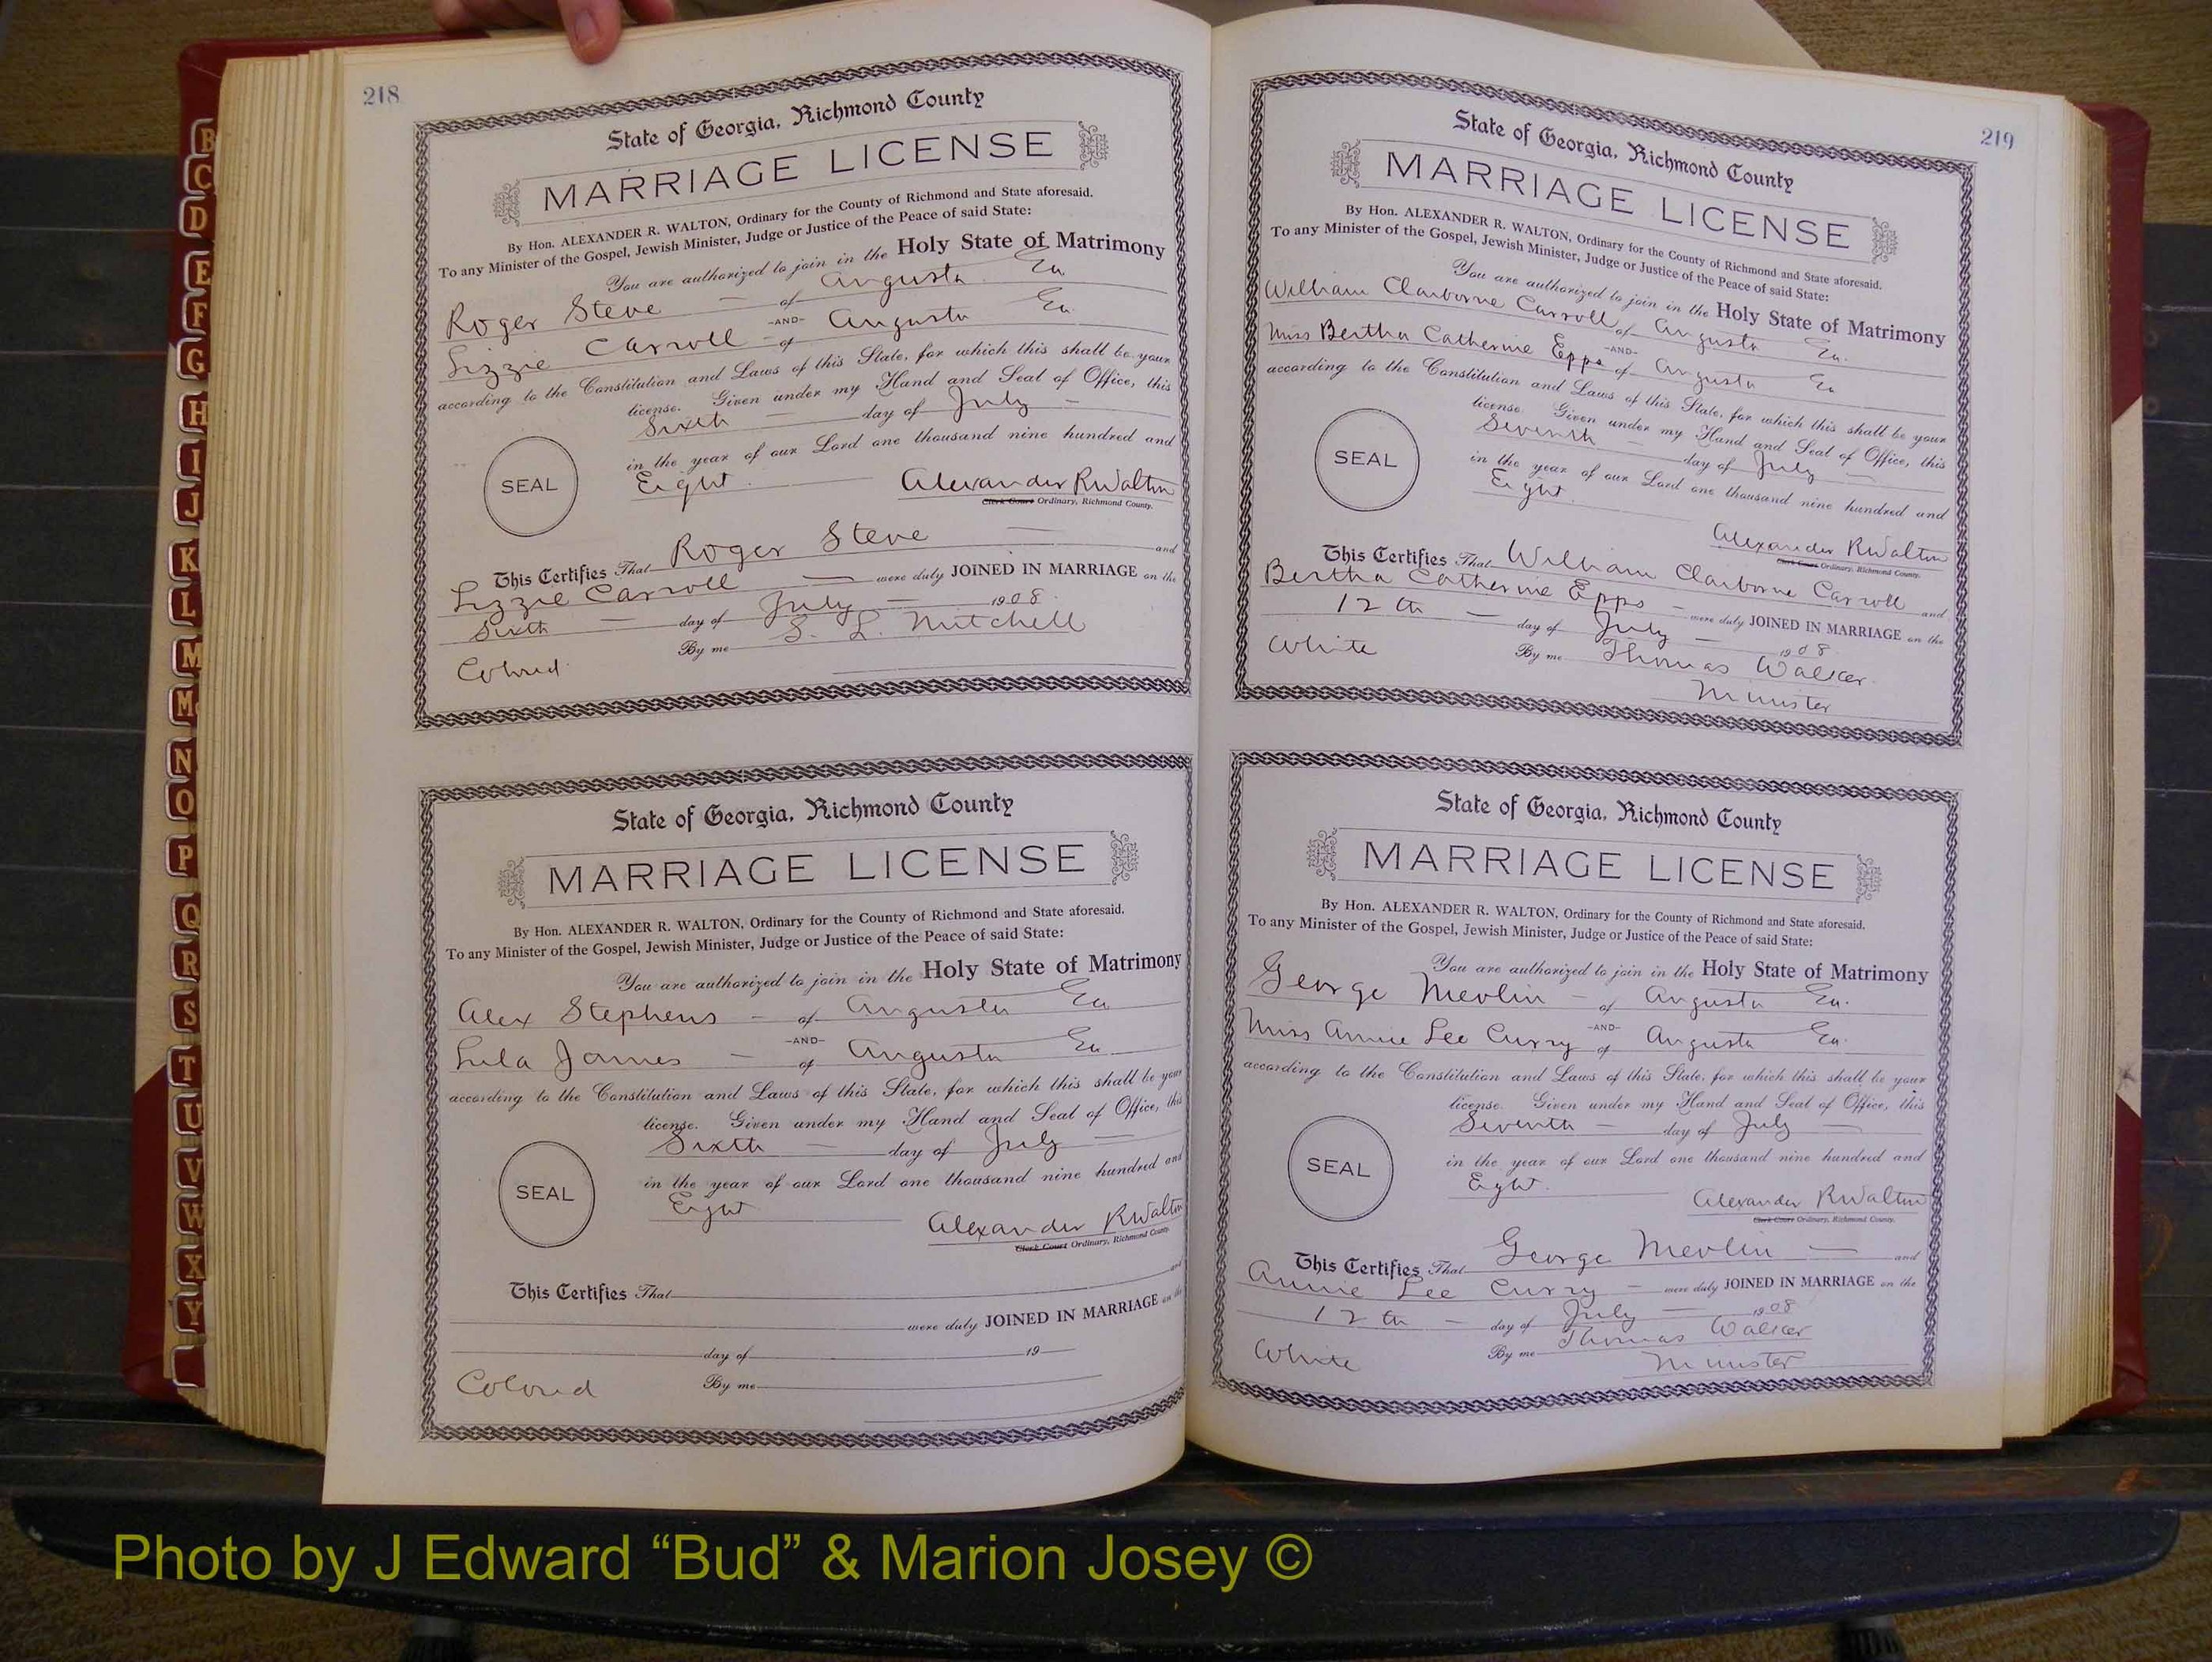 218
State of Georgia, Richmond County
MARRIAGE LICENSE
By Hon. ALEXANDER R. WALTON, Ordinary for the County of Richmond and State aforesaid.
To any Minister of the Gospel, Jewish Minister, Judge or Justice of the Peace of said State:
You are authorized to join in the Holy State of Matrimony
Roger Steve — of Augusta Ga
-AND-
Lizzie Carroll - of Augusta Ga
according to the Constitution and Laws of this State, for which this shall be your
license. Given under my Hand and Seal of Office, this
Sixth — day of July —
in the year of our Lord one thousand nine hundred and
SEAL
Eight.
Alexander R Walton
Clerk Court Ordinary, Richmond County.
This Certifies That Roger Steve — and
Lizzie Carroll — were duly JOINED IN MARRIAGE on the
Sixth — day of July — 1908.
By me S. L. Mitchell
Colored
State of Georgia, Richmond County
MARRIAGE LICENSE
By Hon. ALEXANDER R. WALTON, Ordinary for the County of Richmond and State aforesaid.
To any Minister of the Gospel, Jewish Minister, Judge or Justice of the Peace of said State:
You are authorized to join in the Holy State of Matrimony
Alex Stephens — of Augusta Ga
-AND-
Lula James — of Augusta Ga
according to the Constitution and Laws of this State, for which this shall be your
license. Given under my Hand and Seal of Office, this
Sixth — day of July —
in the year of our Lord one thousand nine hundred and
SEAL
Eight
Alexander R Walton
Clerk Court Ordinary, Richmond County.
This Certifies That and
were duly JOINED IN MARRIAGE on the
day of 19
Colored By me
219
State of Georgia, Richmond County
MARRIAGE LICENSE
By Hon. ALEXANDER R. WALTON, Ordinary for the County of Richmond and State aforesaid.
To any Minister of the Gospel, Jewish Minister, Judge or Justice of the Peace of said State:
You are authorized to join in the Holy State of Matrimony
William Claiborne Carroll of Augusta Ga.
-AND-
Miss Bertha Catherine Epps of Augusta Ga
according to the Constitution and Laws of this State, for which this shall be your
license. Given under my Hand and Seal of Office, this
Seventh — day of July —
in the year of our Lord one thousand nine hundred and
SEAL
Eight.
Alexander R Walton
Clerk Court Ordinary, Richmond County.
This Certifies That William Claiborne Carroll and
Bertha Catherine Epps — were duly JOINED IN MARRIAGE on the
12th — day of July — 1908.
White By me Thomas Walker
Minister
State of Georgia, Richmond County
MARRIAGE LICENSE
By Hon. ALEXANDER R. WALTON, Ordinary for the County of Richmond and State aforesaid.
To any Minister of the Gospel, Jewish Minister, Judge or Justice of the Peace of said State:
You are authorized to join in the Holy State of Matrimony
George Mevlin — of Augusta Ga.
-AND-
Miss Annie Lee Curry of Augusta Ga.
according to the Constitution and Laws of this State, for which this shall be your
license. Given under my Hand and Seal of Office, this
Seventh — day of July —
in the year of our Lord one thousand nine hundred and
SEAL
Eight.
Alexander R Walton
Clerk Court Ordinary, Richmond County.
This Certifies That George Mevlin — and
Annie Lee Curry — were duly JOINED IN MARRIAGE on the
12th — day of July — 1908
White By me Thomas Walker
Minister
B
C
D
E
F
G
H
I
J
K
L
M
Mc
N
O
P
Q
R
S
T
U
V
W
X
Y
Photo by J Edward “Bud” & Marion Josey ©